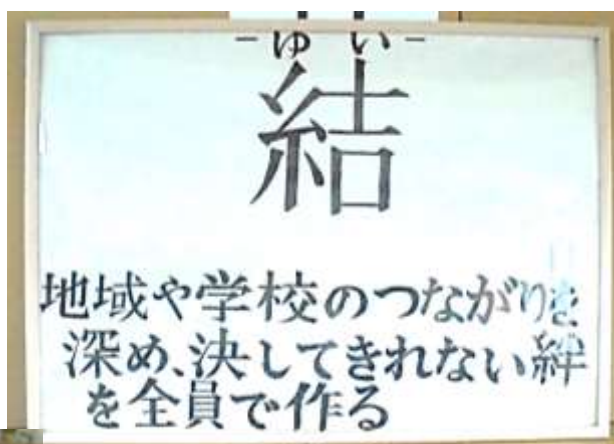 -ゆい-
結
地域や学校のつながりを
深め、決してきれない絆
を全員で作る